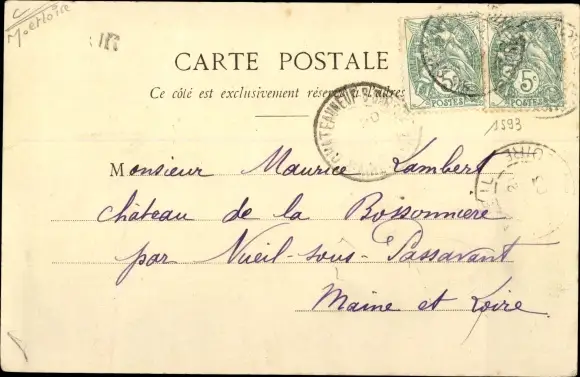 C
M-et-loire
CARTE POSTALE
Ce côté est exclusivement réservé à l'adresse
5c
POSTES
5c
POSTES
1593
CHATEAUNEUF
Monsieur Maurice Lambert
château de la Boissonnière
par Nueil-sous-Passavant
Maine et Loire